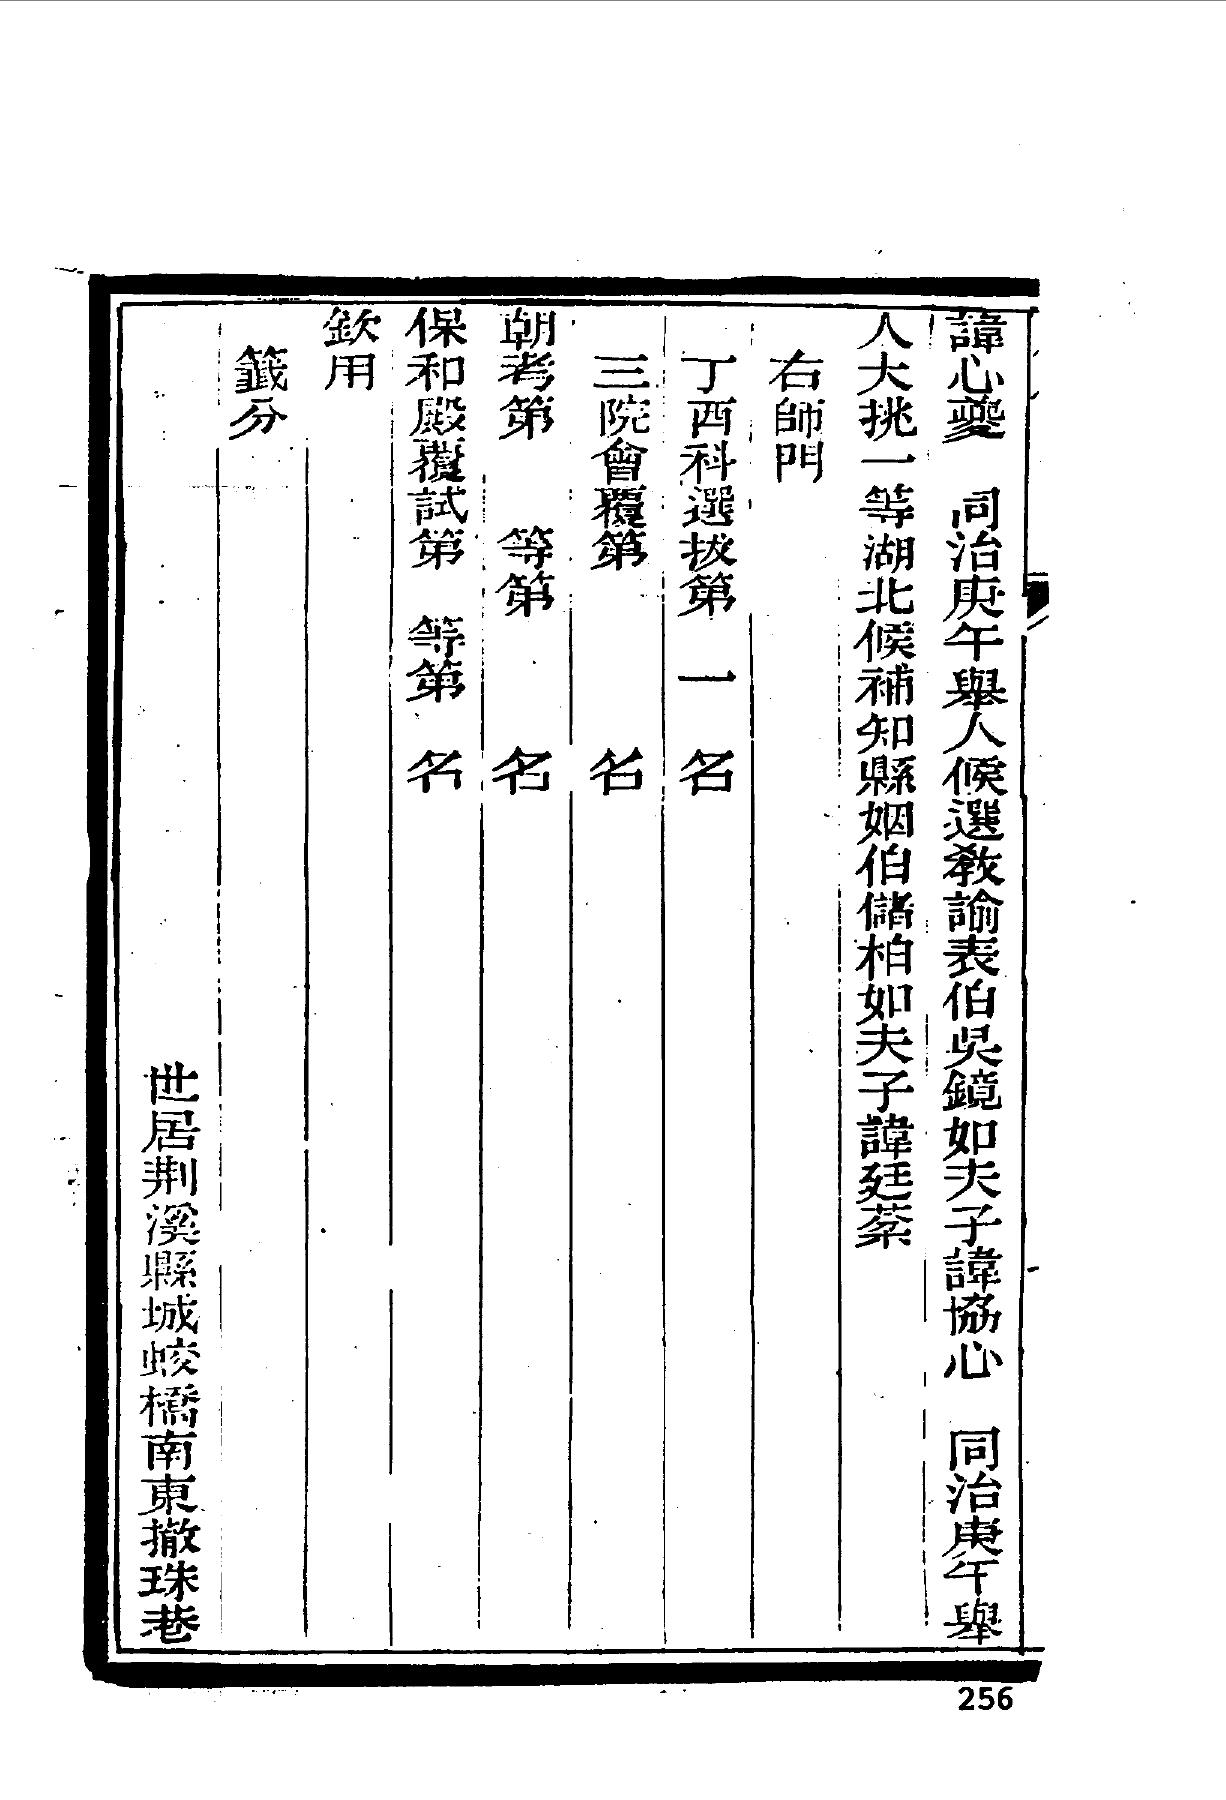 諱心夔　同治庚午舉人候選教諭表伯吳鏡如夫子諱協心　同治庚午舉
人大挑一等湖北候補知縣姻伯儲柏如夫子諱廷棻
右師門
丁酉科選拔第一名
三院會覆第　名
朝考第　等第　名
保和殿覆試第　等第　名
欽用
籤分
世居荆溪縣城蛟橋南東撒珠巷
256